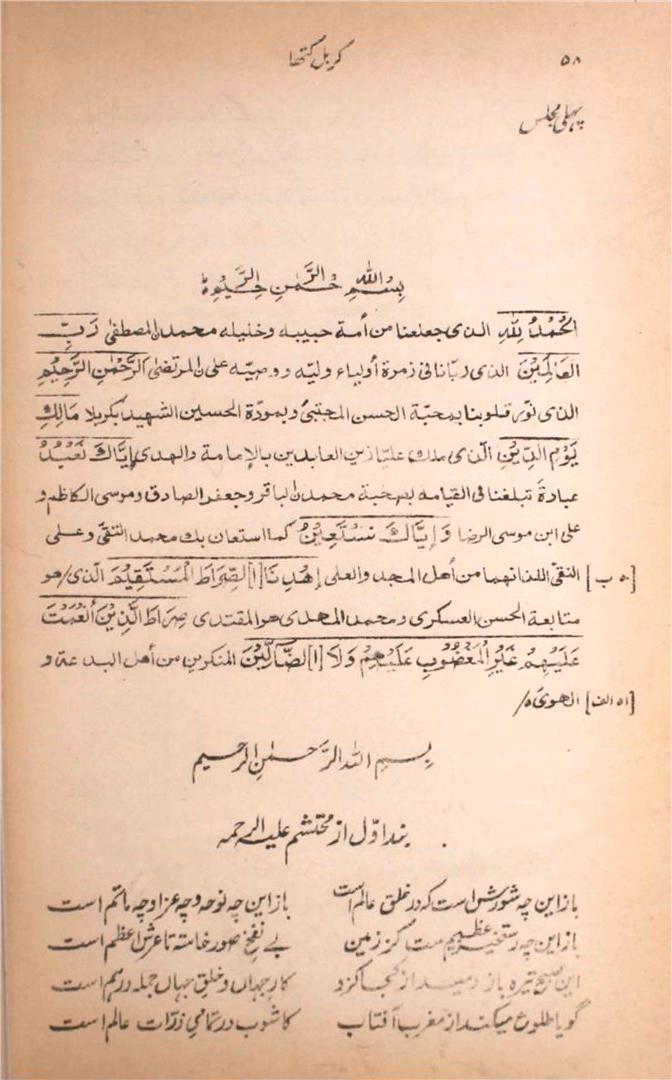 ۵۸ کربل کتھا
پہلی مجلس
بِسْمِ اللهِ الرَّحْمٰنِ الرَّحِيْمِ
اَلْحَمْدُ لِلّٰهِ الذی جعلنا من أمة حبيبه و خليله محمدن المصطفی رَبِّ
الْعَالَمِيْنَ الذی ربّانا فی زمرة أولياء وليّه و وصيّه علی ن المرتضی الرَّحْمٰنِ الرَّحِيْمِ
الذی نوّر قلوبنا بمحبّة الحسن المجتبیٰ و بمودّة الحسين الشهيد بکربلا مَالِكِ
يَوْمِ الدِّيْنِ الّذی علیّا زين العابدين بالإمامة والهدی إِيَّاكَ نَعْبُدُ
عبادةً تبلغنا فی القيامه بصحبة محمدن الباقر و جعفر الصادق و موسی الکاظم و
علی ابن موسی الرضا وَ إِيَّاكَ نَسْتَعِيْنُ کما استعان بك محمد التقی و علی
[۵۰ ب] النقی اللذانهما من أهل المجد والعلی إِهْدِنَا [ا] لصِّرَاطَ الْمُسْتَقِيْمَ الّذی / هو
متابعة الحسن العسکری و محمد المهدی هو المقتدی صِرَاطَ الَّذِيْنَ أَنْعَمْتَ
عَلَيْهِمْ غَيْرِ الْمَغْضُوْبِ عَلَيْهِمْ وَلَا [ا] لضَّالِّيْنَ المنکرین من أهل البدعة و
[۵۱ الف] الهوی ٥/
بِسْمِ اللهِ الرَّحْمٰنِ الرحیم
بند اوّل از محتشم علیہ الرحمہ
باز این چہ شورش است کہ در خلق عالم است باز این چہ نوحہ و چہ عزا و چہ ماتم است
باز این چہ رستخیز عظیم ست کز زمین بے نفخ صور خاستہ تا عرش اعظم است
این صبح تیرہ باز دمید از کجا کزو کار جہاں و خلق جہاں جملہ درہم است
گویا طلوع میکند از مغرب آفتاب کاشوب در تمامی ذرّات عالم است